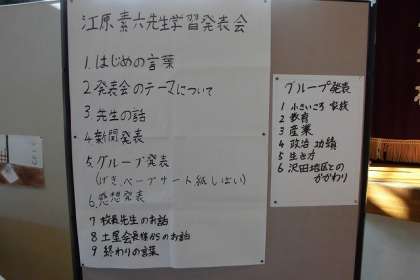 江原素六先生学習発表会
1.はじめの言葉
2.発表会のテーマについて
3.先生の話
4.新聞発表
5.グループ発表
(げき、ペープサート紙しばい)
6.感想発表
7 校長先生のお話
8 土星会長様からのお話
9 終わりの言葉
グループ発表
1 小さいころ 家族
2 教育
3 産業
4 政治 功績
5 生き方
6 沢田地区との
かかわり